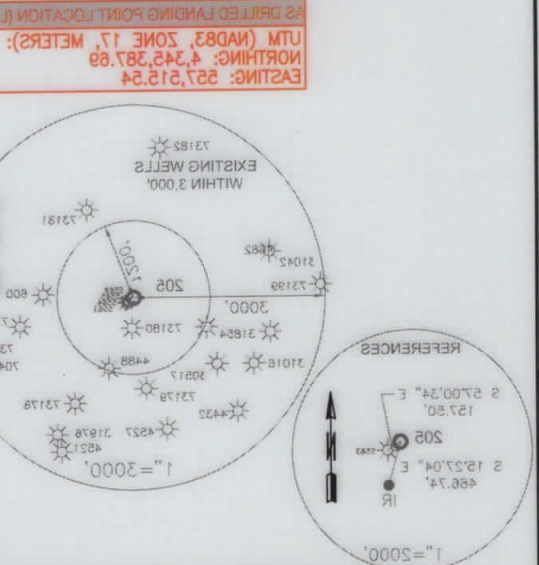 AS DRILLED LANDING POINT LOCATION (L
UTM (NAD83, ZONE 17, METERS):
NORTHING: 4,345,387.69
EASTING: 557,515.54
73182
EXISTING WELLS
WITHIN 3,000'
73181
1200'
31042
73199
600
205
3000'
73180
31854
4488
30517
31016
73179
73178
4432
4527
31976
4521
1"=3000'
REFERENCES
S 57°00'34" E
157.50'
205
S 15°27'04" E
466.74'
N
IR
1"=2000'